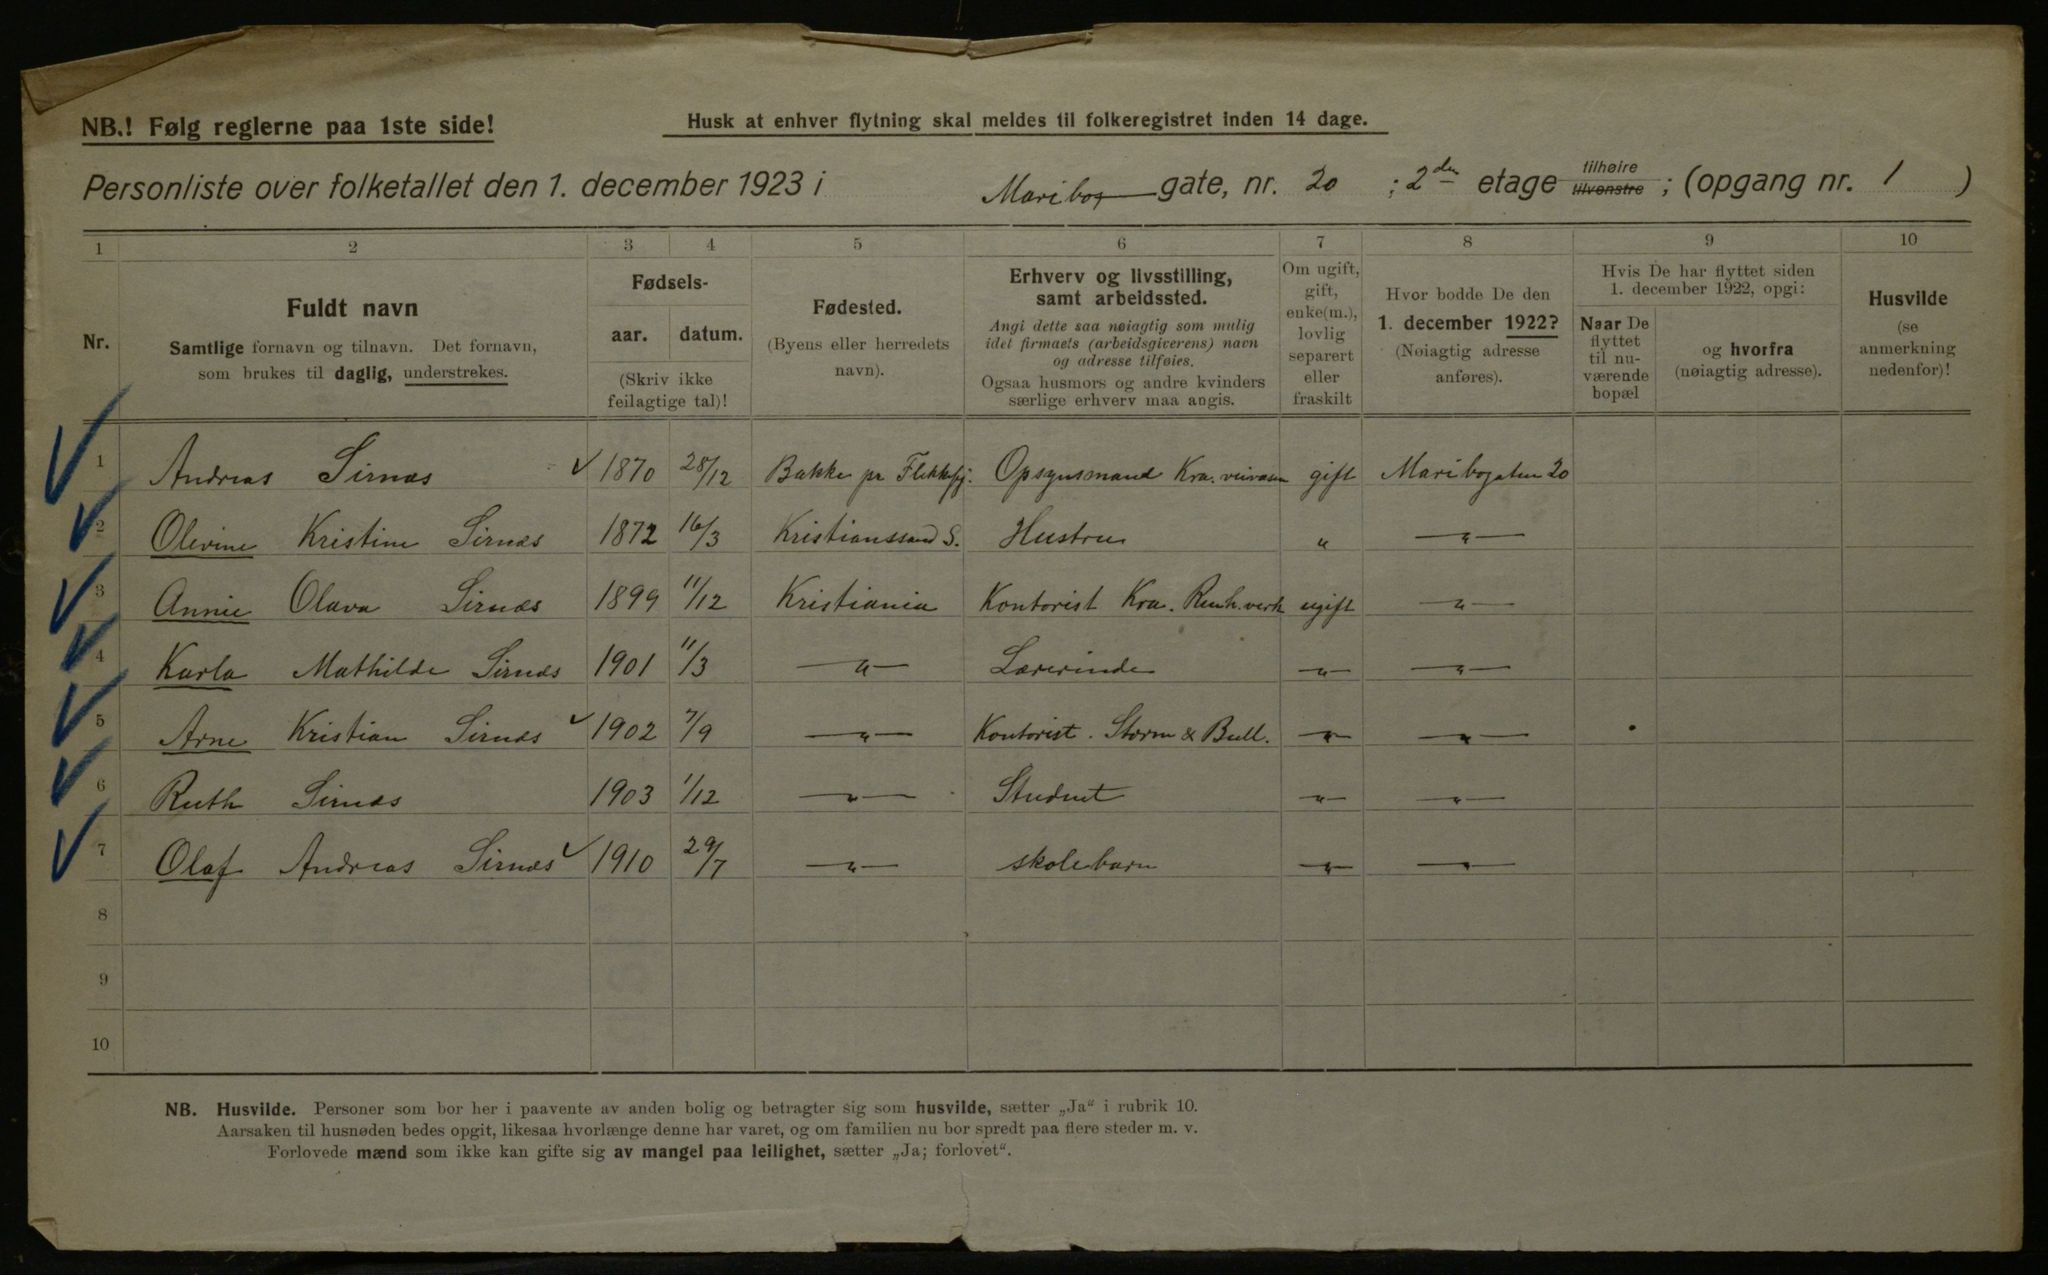 NB.! Følg reglerne paa 1ste side!
Husk at enhver flytning skal meldes til folkeregistret inden 14 dage.
Personliste over folketallet den 1. december 1923 i Maribo gate, nr. 20 ; 2den etage tilhøire tilvenstre ; (opgang nr. 1 )
1 2 3 4 5 6 7 8 9 10
Nr.
Fuldt navn
Samtlige fornavn og tilnavn. Det fornavn,
som brukes til daglig, understrekes.
Fødsels-
aar. datum.
(Skriv ikke
feilagtige tal)!
Fødested.
(Byens eller herredets
navn).
Erhverv og livsstilling,
samt arbeidssted.
Angi dette saa nøiagtig som mulig
idet firmaets (arbeidsgiverens) navn
og adresse tilføies.
Ogsaa husmors og andre kvinders
særlige erhverv maa angis.
Om ugift,
gift,
enke(m.),
lovlig
separert
eller
fraskilt
Hvor bodde De den
1. december 1922?
(Nøiagtig adresse
anføres).
Hvis De har flyttet siden
1. december 1922, opgi:
Naar De
flyttet
til nu-
værende
bopæl
og hvorfra
(nøiagtig adresse).
Husvilde
(se
anmerkning
nedenfor)!
1 Andreas Sirnæs 1870 28/12 Bakke pr Flekkefj. Opsynsmand Kra. veivæsen gift Maribogaten 20
2 Olevine Kristine Sirnæs 1872 16/3 Kristianssand S. Hustru " "
3 Annie Olava Sirnæs 1899 11/12 Kristiania Kontorist Kra. Renh.verk ugift "
4 Karla Mathilde Sirnæs 1901 11/3 " Lærerinde " "
5 Arne Kristian Sirnæs 1902 7/9 " Kontorist. Storm & Bull. " "
6 Ruth Sirnæs 1903 1/12 " Student " "
7 Olaf Andreas Sirnæs 1910 29/7 " skolebarn " "
8
9
10
NB. Husvilde. Personer som bor her i paavente av anden bolig og betragter sig som husvilde, sætter „Ja“ i rubrik 10.
Aarsaken til husnøden bedes opgit, likesaa hvorlænge denne har varet, og om familien nu bor spredt paa flere steder m. v.
Forlovede mænd som ikke kan gifte sig av mangel paa leilighet, sætter „Ja; forlovet“.